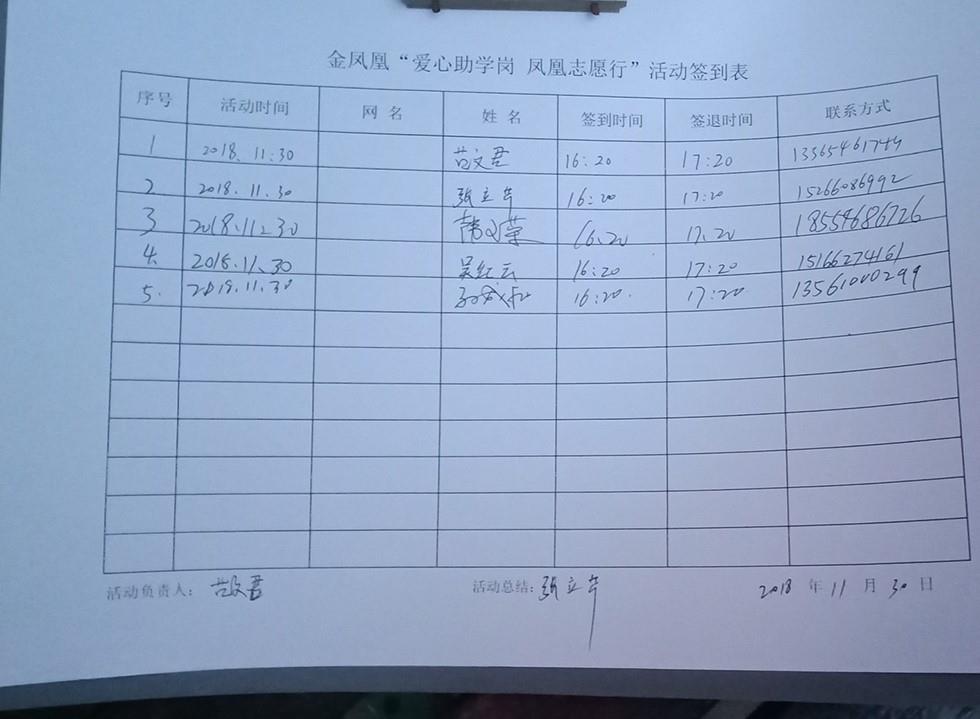 金凤凰“爱心助学岗 凤凰志愿行”活动签到表
序号 活动时间 网 名 姓 名 签到时间 签退时间 联系方式
1 2018.11:30 苗文君 16:20 17:20 13365461744
2 2018.11.30 张立芹 16:20 17:20 15266086992
3 2018.11.30 16.20 17.20 18554686726
4. 2018.11.30 吴红云 16:20 17:20 15166274161
5. 2018.11.30 16:20. 17:20 13561000299
活动负责人: 苗文君 活动总结: 张立芹 2018 年 11 月 30 日